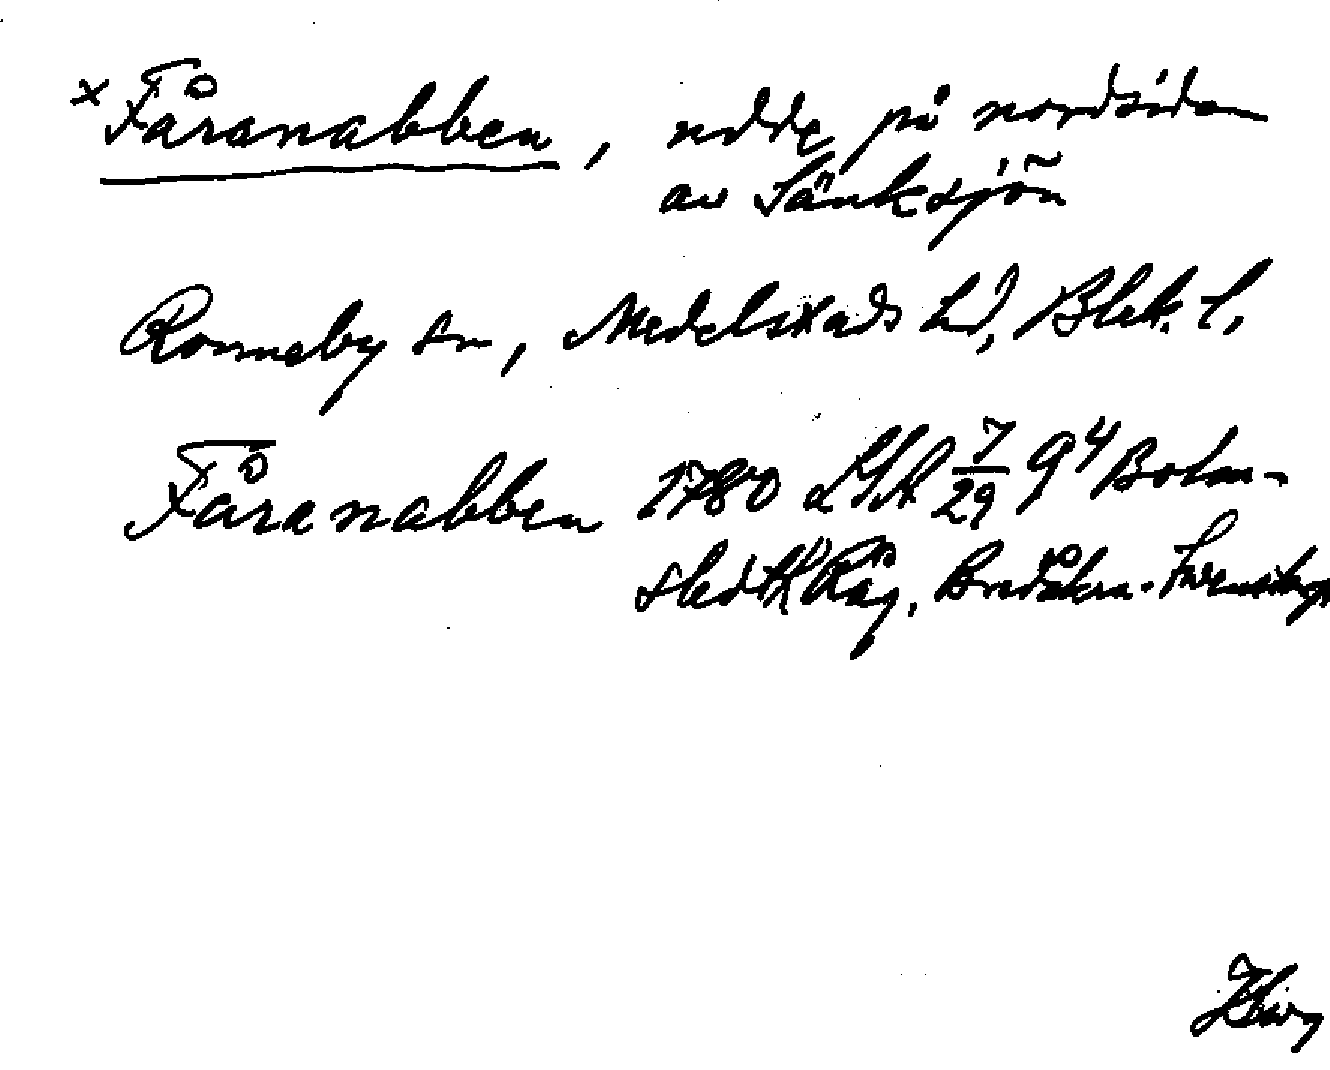 × Fåranabben, udde på nordsidan
av Sänksjön
Ronneby sn, Medelstads hd, Blek. l.
Fåranabben 1780 LSA 7/29 94 Bolm-
stedt Räg, Bredåkra-